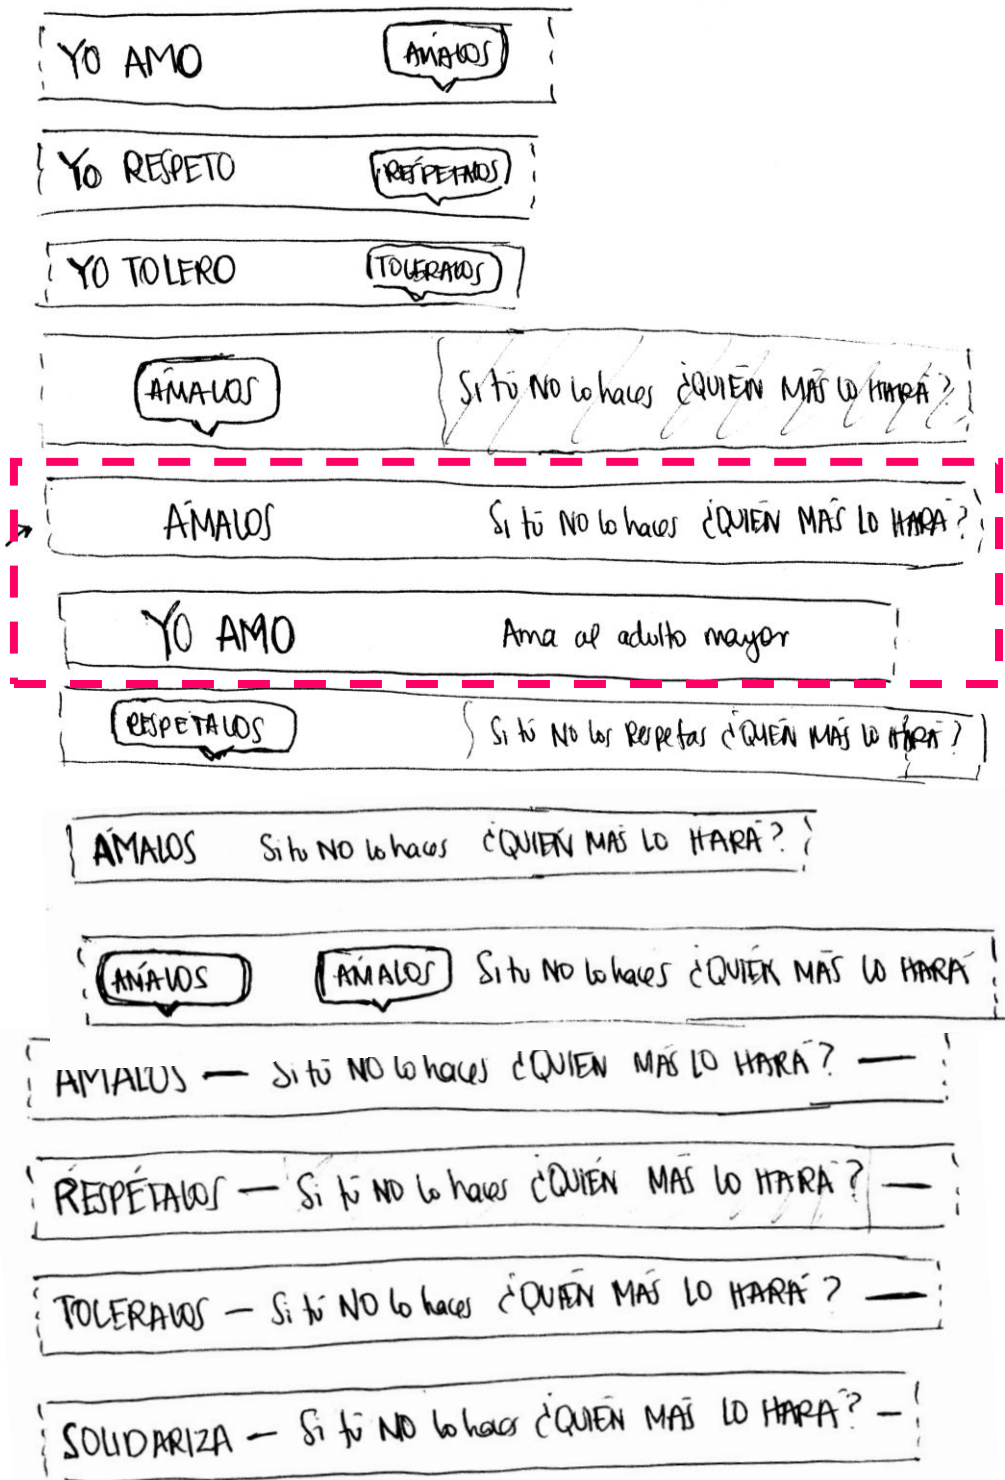 YO AMO AMALOS
YO RESPETO RESPETALOS
YO TOLERO TOLERALOS
ÁMALOS Si tú NO lo haces ¿QUIÉN MÁS LO HARÁ?
ÁMALOS Si tú NO lo haces ¿QUIÉN MÁS LO HARÁ?
YO AMO Ama al adulto mayor
RESPÉTALOS Si tú NO los Respetas ¿QUIÉN MÁS LO HARÁ?
ÁMALOS Si tu NO lo haces ¿QUIÉN MÁS LO HARÁ?
ÁMALOS ÁMALOS Si tu NO lo haces ¿QUIÉN MÁS LO HARÁ
AMALOS — Si tú NO lo haces ¿QUIEN MÁS LO HARÁ? —
RESPÉTALOS — Si tú NO lo haces ¿QUIÉN MÁS LO HARÁ? —
TOLERALOS — Si tú NO lo haces ¿QUIÉN MÁS LO HARÁ? —
SOLIDARIZA — Si tú NO lo haces ¿QUIÉN MÁS LO HARÁ? —